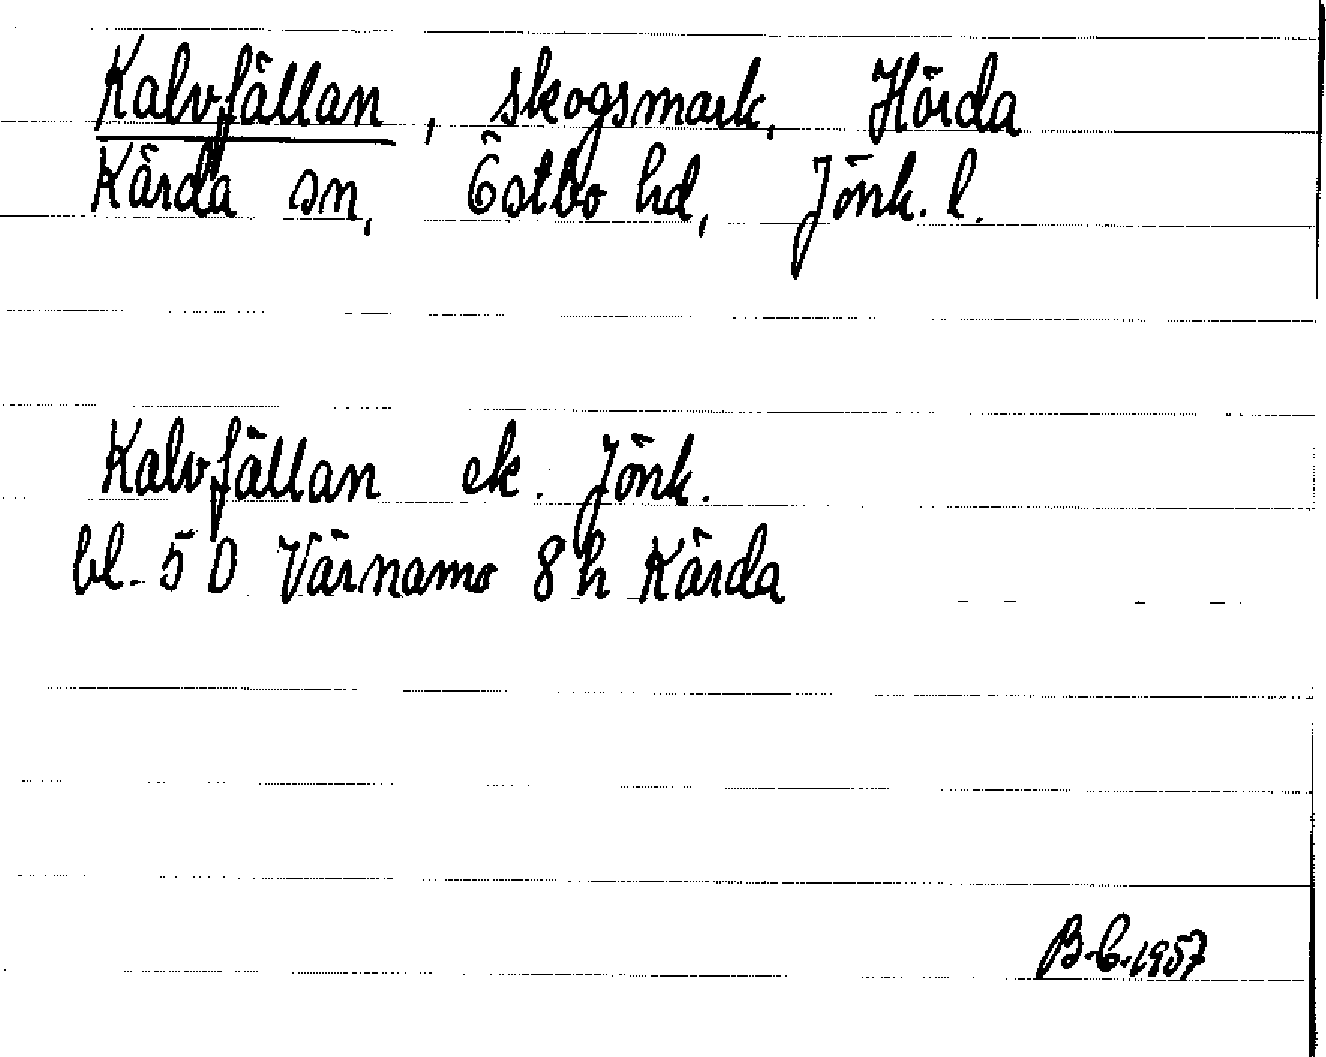 Kalvfällan, skogsmark, Hörda
Kärda sn, Östbo hd, Jönk. l.
Kalvfällan ek. Jönk.
bl. 5 D Värnamo 8 h Kärda
B.C. 1957